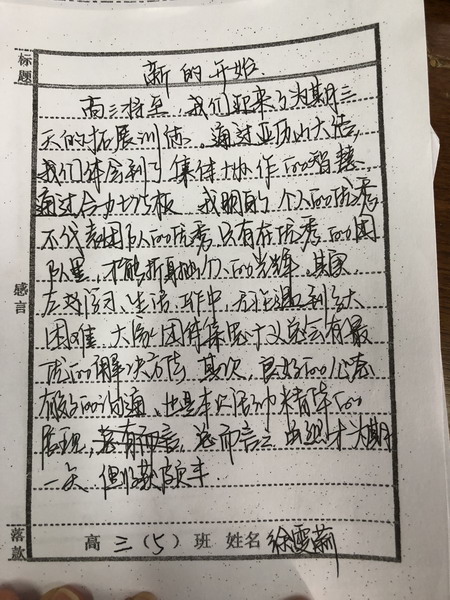 标题
新的开始
高三将至,我们迎来了为期三
天的拓展训练。通过亚历山大传,
我们体会到了集体协作的智慧
通过合力巧板 我明白 个人的优秀
不代表团队的优秀,只有在优秀的团
队里,才能折射他们的光辉。其实,
在学习、生活、工作中,无论遇到多大
困难 大家团结集思广义总会有最
优的解决方法 其次,良好的心态
有效的沟通、也是本次活动精华的
展现,总而言之 虽然才为期
一天 但收获颇丰
感言
落款
高三(5)班 姓名 徐雪莉